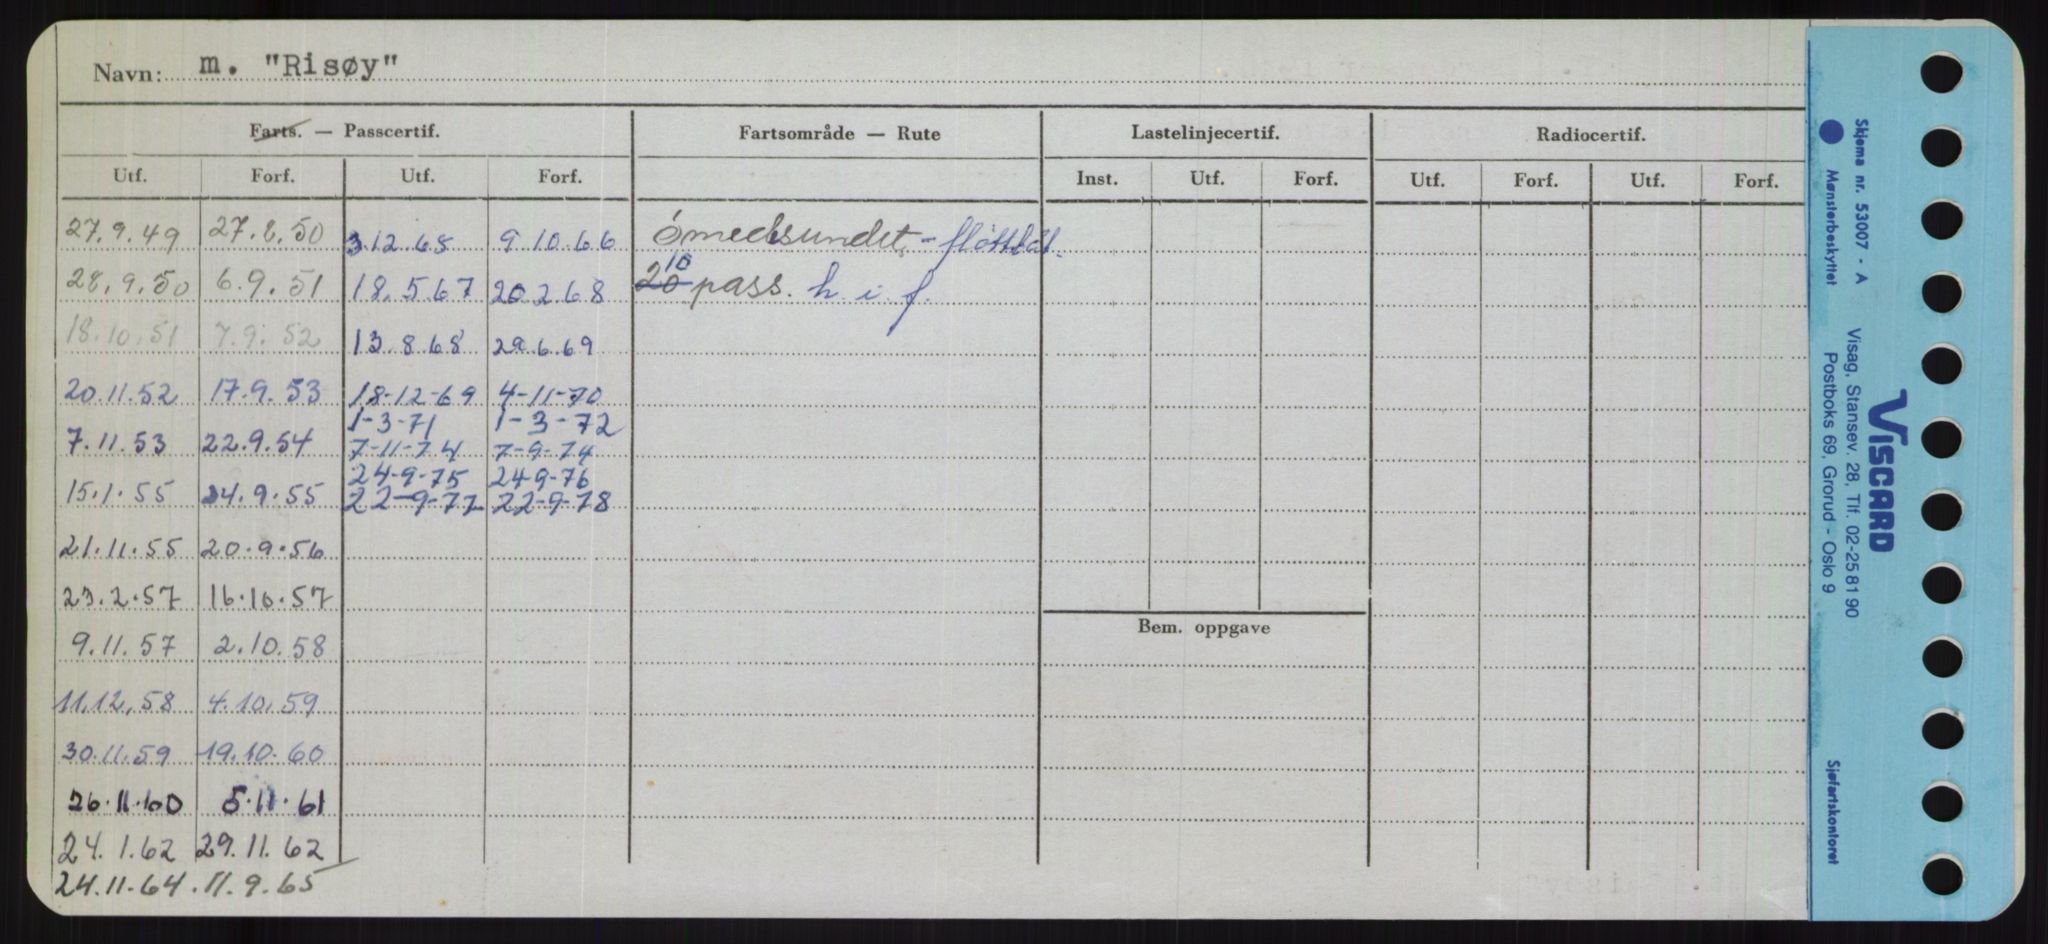 Navn: m. "Risøy"
Farts. — Passcertif. Fartsområde — Rute Lastelinjecertif. Radiocertif.
Utf. Forf. Utf. Forf. Inst. Utf. Forf. Utf. Forf. Utf. Forf.
27.9.49 27.8.50 3.12.65 9 10.66 Ómedsundet, - fløttbåt.
28.9.50 6.9.51 18.5.67 20 2.68 20 10 pass. h. i. f.
18.10.51 7.9.52 13.8.68 29.6.69
20.11.52 17.9.53 18-12-69 4-11-70
1-3-71 1-3-72
7.11.53 22.9.54 7-11-74 7-9-74
24-9-75 24-9-76
15.1.55 24.9.55 22-9-77 22-9-78
21.11.55 20.9.56
23.2.57 16.10.57
9.11.57 2.10.58
Bem. oppgave
11.12.58 4.10.59
30.11.59 19.10.60
26.11.60 5.11.61
24.1.62 29.11.62
24.11.64. 11.9.65
Skjema nr. 53007 - A
Mønsterbeskyttet
VISCARD
Visag, Stansev. 28, Tlf. 02-25 81 90
Postboks 69, Grorud - Oslo 9
Sjøfartskontoret